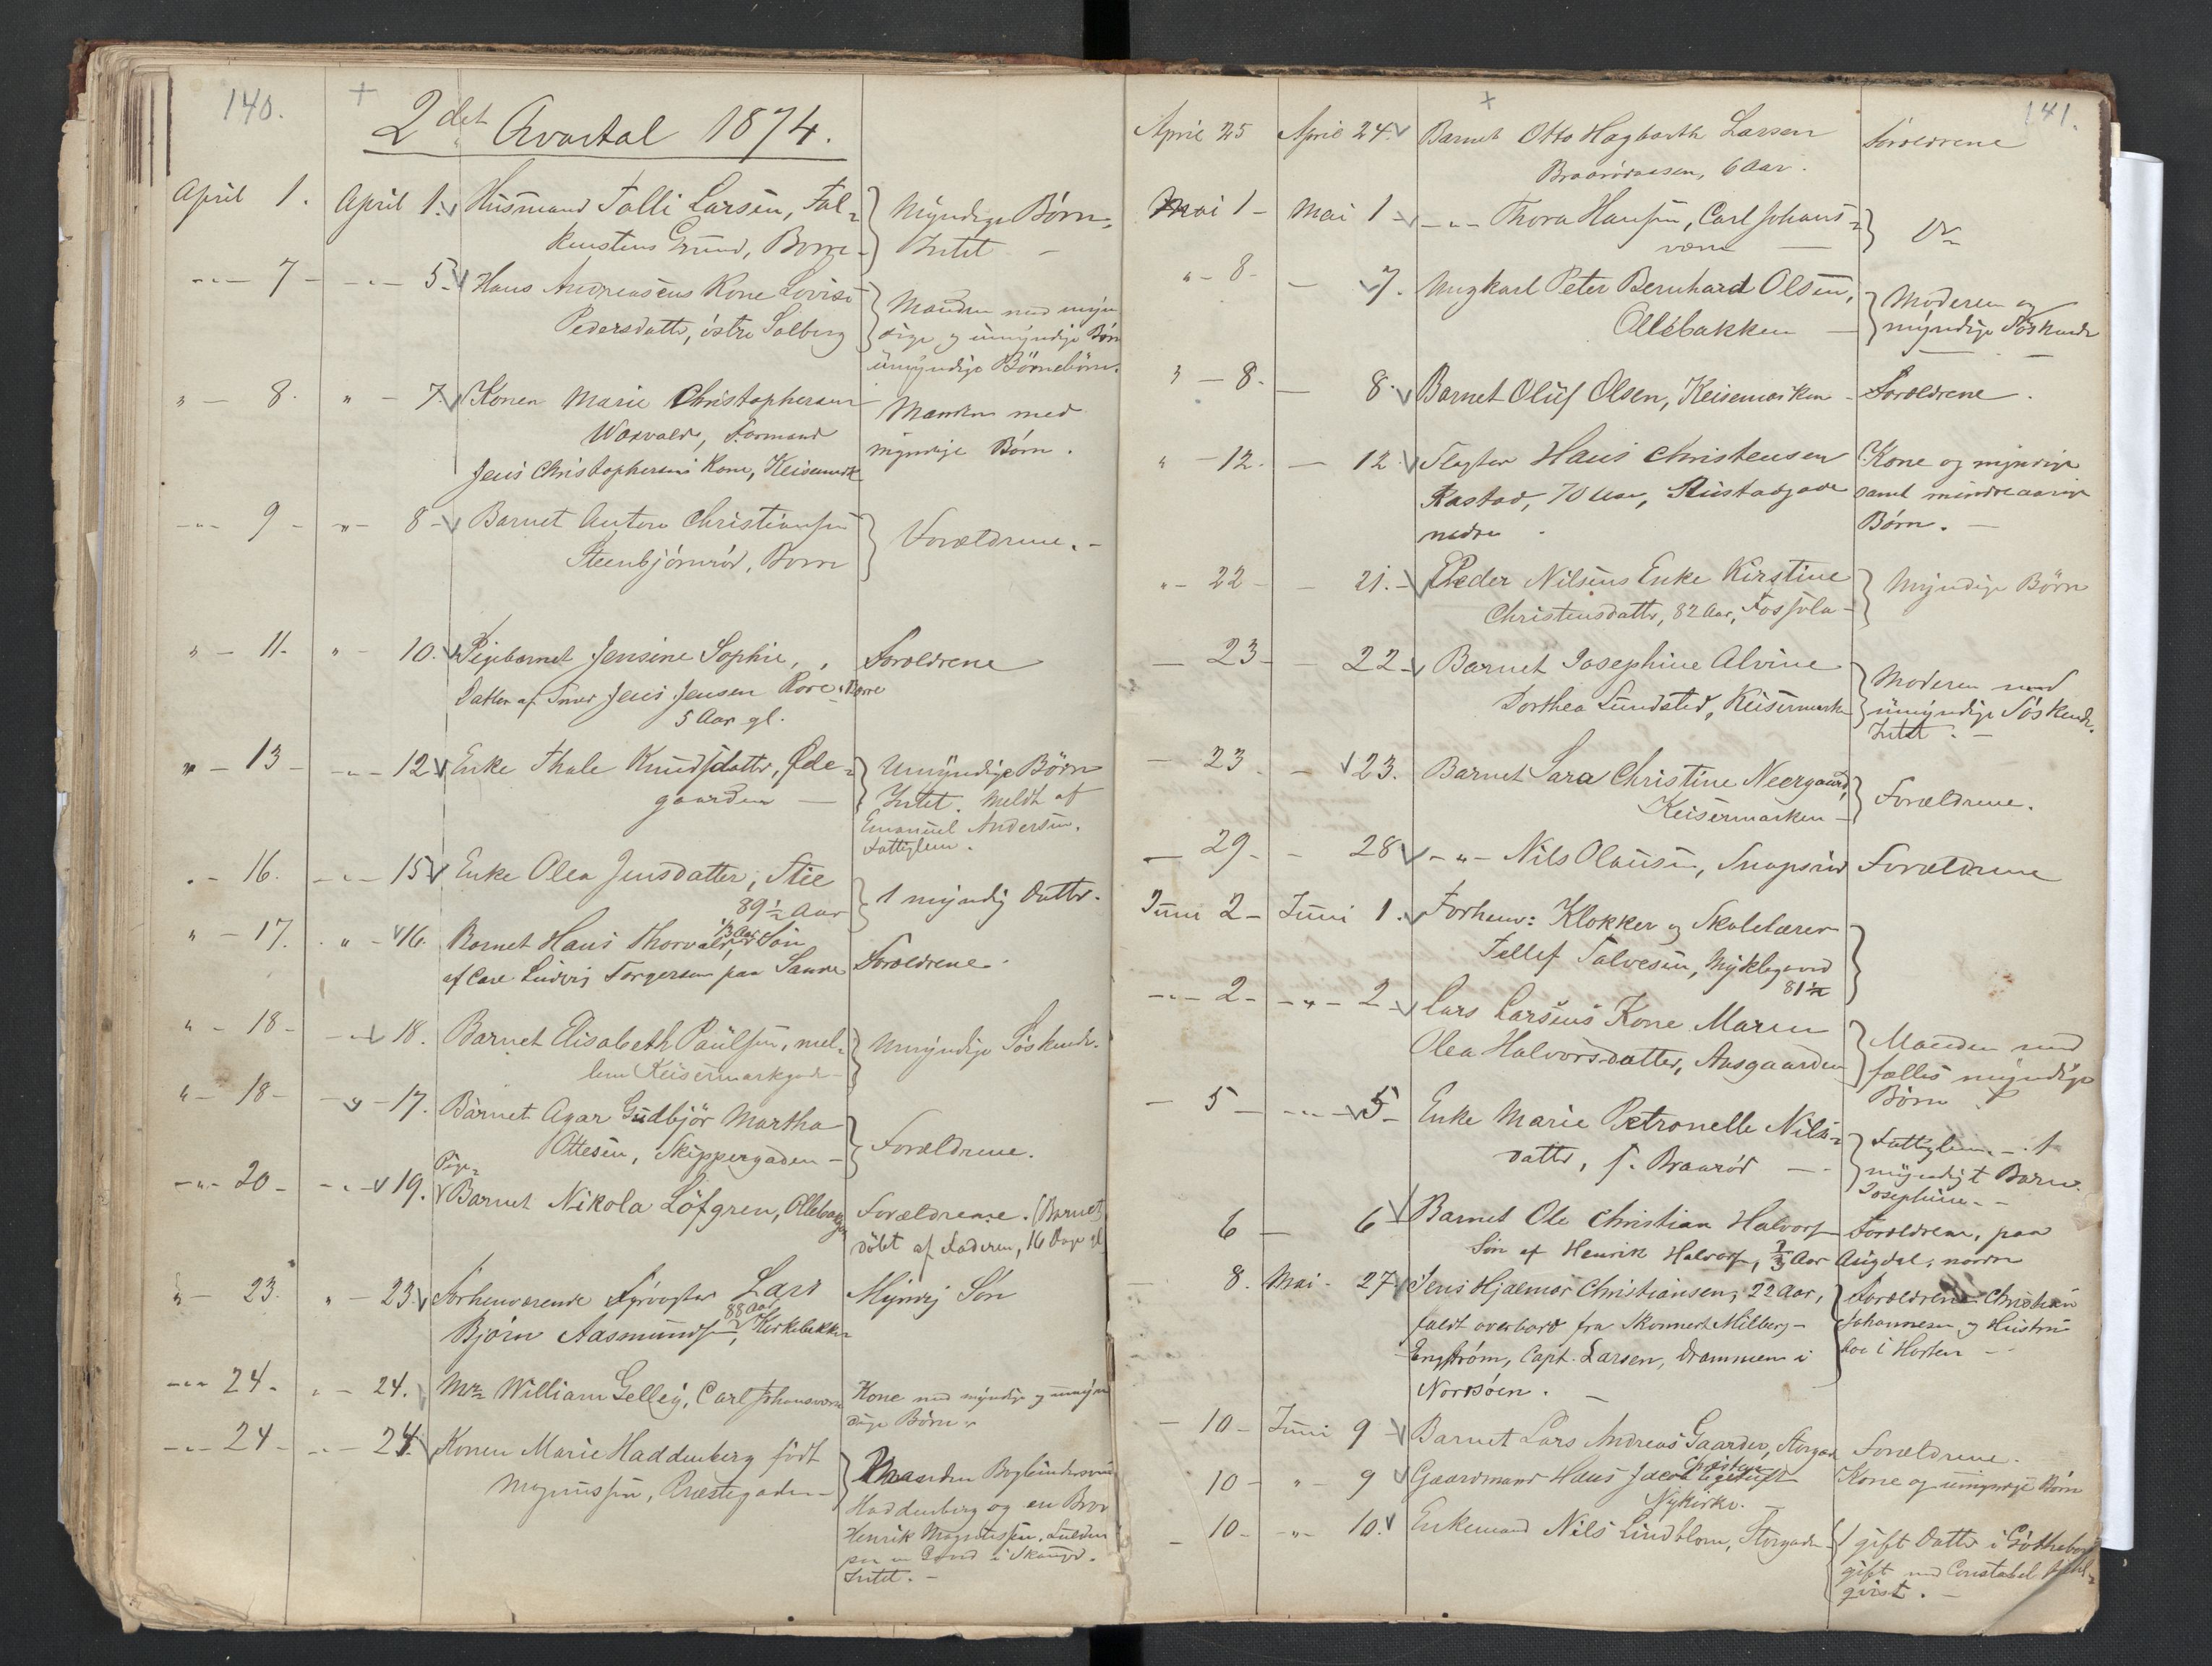 140.
2det Qvartal 1874.
April 1. April 1. Husmand Talli Larsen, Fal=
kenstens Grund, Borre
Myndige Børn.
Intet
-"- 7 - -"- 5. Hans Andreasens Kone Lovise
Pedersdatter, østre Solberg
Manden med myn
dige og umyndige Børn
umyndige Børnebørn.
" - 8. " - 7. Konen Marie Christophersen
Woxvald, Formand
Jens Christophersens Kone, Keisemark
Manden med
myndige Børn.
-"- 9 - -"- 8 - Barnet Anton Christiansen
Steenbjørnrød, Borre
Forældrene. -
" - 11. " - 10. Pigebarnet Jensine Sophie,
Datter af Smed Jens Jensen Rore, Borre
5 Aar gl.
Forældrene
" - 13 - -"- 12 Enke Thale Knudsdatter, Øde=
gaarden -
Umyndige Børn
Intet. Meldt af
Emanuel Andersen.
Fattiglem.
" - 16. -"- 15 Enke Olea Jensdatter, Stie
89 1/2 Aar
1 myndig Datter.
" - 17. " - 16. Barnet Hans Thorvald, 1/3 Aar Søn
af Carl Ludvig Torgersen paa Sande
Forældrene.
" - 18 - -"- 18. Barnet Elisabeth Paulsen, mel=
lem Keisermarkgade
Umyndige Søskende.
" - 18 - -"- 17. Barnet Agar Gudbjør Martha
Ottesen, Skippergaden -
Forældrene.
-"- 20 - -"- 19. Pige=
Barnet Nikola Löfgren, Ollebakken
Forældrene. (Barnet
døbt af Faderen, 16 Dage gl
" - 23. " - 23. Forhenværende Fyrvogter Lars
Bjørn Aasmunds, 88 Aar, Kirkebakken
Myndig Søn
-"- 24. " - 24. Mr William Gelley, Carljohansværn
Kone med myndige og umyn
dige Børn.
-"- 24 - -"- 24. Konen Marie Haddenberg født
Magnussen, Præstegaden -
Manden Bogbindersvend
Haddenberg og en Bror
Henrik Magnussen,
paa en Gaard i Skauger.
Intet. -
141.
April 25 April 24. Barnet Otto Hagbarth Larsen
Braarødaasen, 6 Aar.
Forældrene
Mai 1 - Mai 1 - -"- Thora Hansen, Carljohans=
værn -
Do
" - 8 - - 7. Ungkarl Peter Bernhard Olsen,
Ollébakken -
Moderen og
myndige Søskende
" - 8. - 8. Barnet Oluf Olsen, Keisemarken -
Forældrene.
" - 12. - 12. Slagter Hans Christensen
Rastad, 70 Aar, Rustadgade
nedre.
Kone og myndige
samt mindreaarige
Børn. -
" - 22 - - 21. - Peder Nilsens Enke Kirstine
Christensdatter, 82 Aar, Fossola -
Myndige Børn
- 23 - - 22 - Barnet Josephine Alvine
Dorthea Lundsted, Keisermark
Moderen med
umyndige Søskende.
Intet. -
- 23 - 23. Barnet Sara Christine Neergaard,
Keisermarken -
Forældrene.
- 29 - - 28 -"- Nils Olausen, Snapsrød
Forældrene
Juni 2 - Juni 1. Forhenv: Klokker og Skolelærer
Tellef Salvesen, Myklegaard
81 1/2
-"- 2 - -"- 2 - Lars Larsens Kone Maren
Olea Halvorsdatter, Aasgaarden
Manden med
fælles myndige
Børn
- 5 - -"- 5 - Enke Marie Petronelle Nils=
datter, f. Braarød -
Fattiglem. - 1
myndigt Barn
Josephine. -
6 - 6 Barnet Ole Christian Halvors
Søn af Henrik Halvors, 2/3 Aar
Forældrene, paa
Augdal, nordre
8. Mai - 27. Jens Hjalmar Christiansen, 22 Aar,
faldt overbord fra Skonnert Milberg -
Engstrøm, Capt. Larsen, Drammen i
Nordsøen. -
Forældrene Christian
Johannesen og Hustru
boe i Horten -
- 10 - Juni 9 - Barnet Lars Andreas Gaarder, Storgad
Forældrene.
10 - " - 9 Gaardmand Hans Jacob Christian
Nykirke. -
Kone og umyndige Børn
- 10 - -"- 10. Enkemand Nils Lindblom, Storgaden -
1 gift Datter i Gøtheborg
gift med Constabel
qvist. -